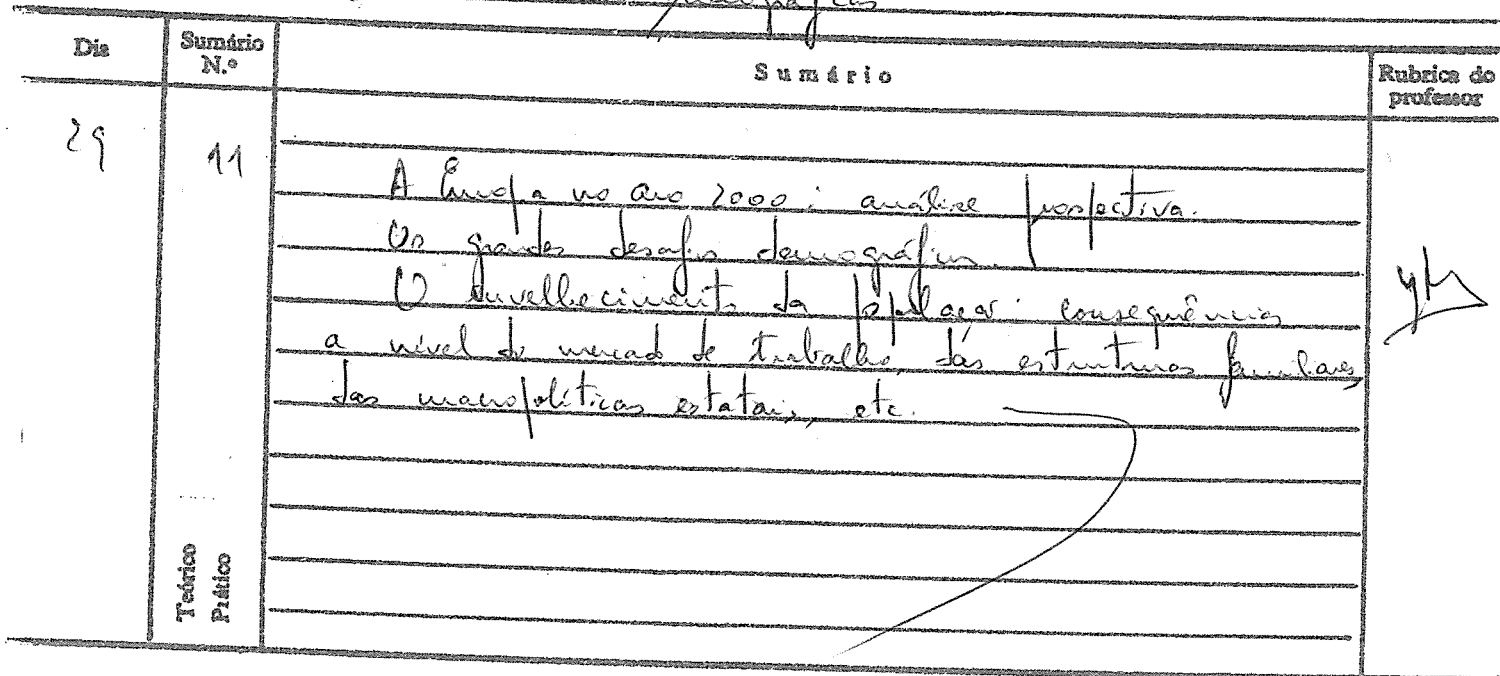 Dia
Sumário N.º
Sumário
Rubrica do professor
29
11
A Europa no ano 2000: análise prospectiva.
Os grandes desafios demográficos.
O envelhecimento da população: consequências
a nível do mercado de trabalho, das estruturas familiares,
das macropolíticas estatais, etc.
Teórico
Prático